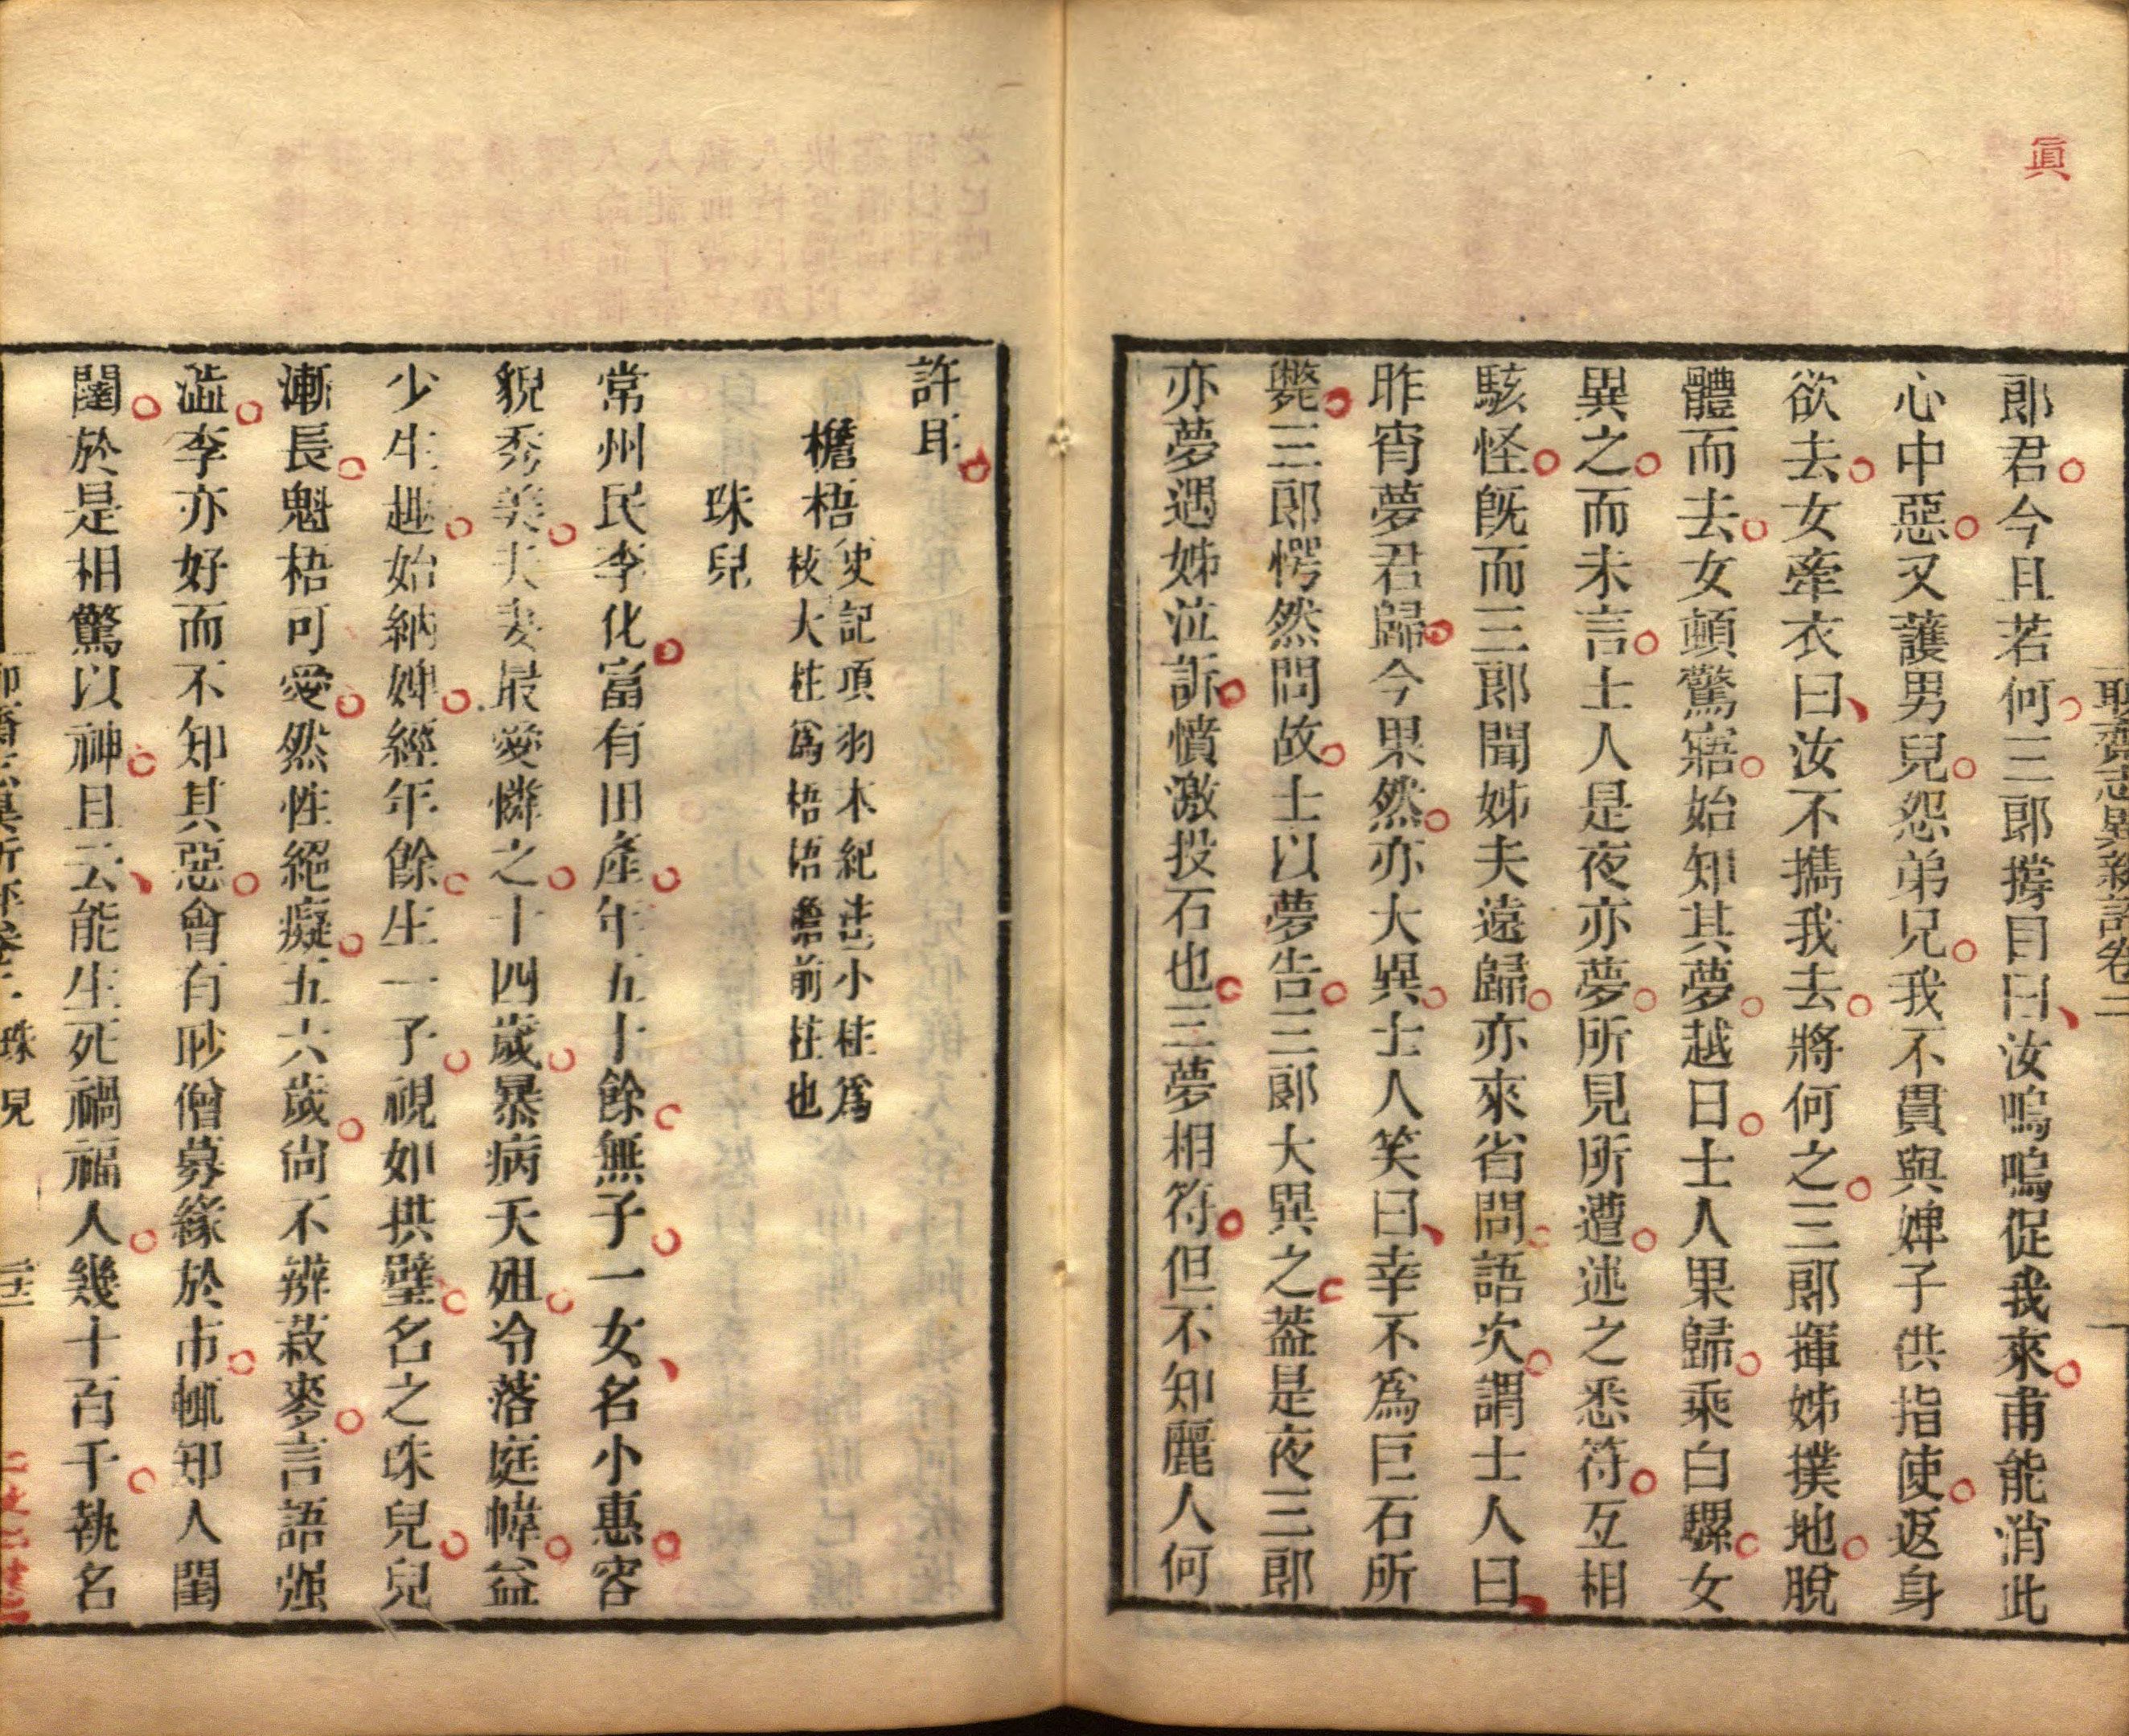 眞
聊齋志異新評卷二
郎君今且若何三郎撐目曰汝嗚嗚促我來甫能消此
心中惡又護男兒怨弟兄我不貫與婢子供指使返身
欲去女牽衣曰汝不攜我去將何之三郎揮姊撲地脫
體而去女頓驚寤始知其夢越日士人果歸乘白騾女
異之而未言士人是夜亦夢所見所遭述之悉符互相
駭怪旣而三郎聞姊夫遠歸亦來省問語次謂士人曰
昨宵夢君歸今果然亦大異士人笑曰幸不爲巨石所
斃三郎愕然問故士以夢告三郎大異之葢是夜三郎
亦夢遇姊泣訴憤激投石也三夢相符但不知麗人何
許耳
檐梧史記項羽本紀註小柱爲
枝大柱爲梧梧簷前柱也
珠兒
常州民李化富有田產年五十餘無子一女名小惠容
貌秀美夫妻最愛憐之十四歲暴病夭殂冷落庭幃益
少生趣始納婢經年餘生一子視如拱璧名之珠兒兒
漸長魁梧可愛然性絕癡五六歲尙不辨菽麥言語蹇
澁李亦好而不知其惡會有眇僧募緣於市輒知人閨
闥於是相驚以神且云能生死禍福人幾十百千執名
聊齋志異新評卷二 珠兒 三十三